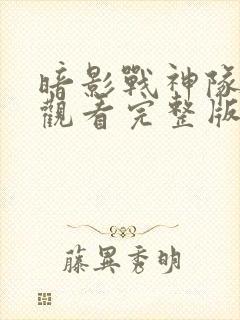 暗影戰神隊
觀看完整版
藤異秀明